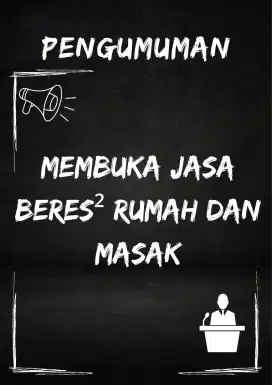 PENGUMUMAN
MEMBUKA JASA
BERES² RUMAH DAN
MASAK